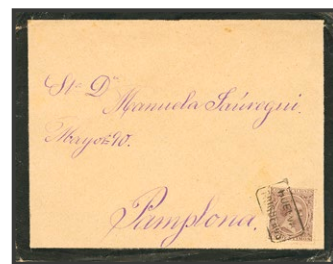 Sta Da
Manuela Saúregui.
Mayor 90.
Pamplona.